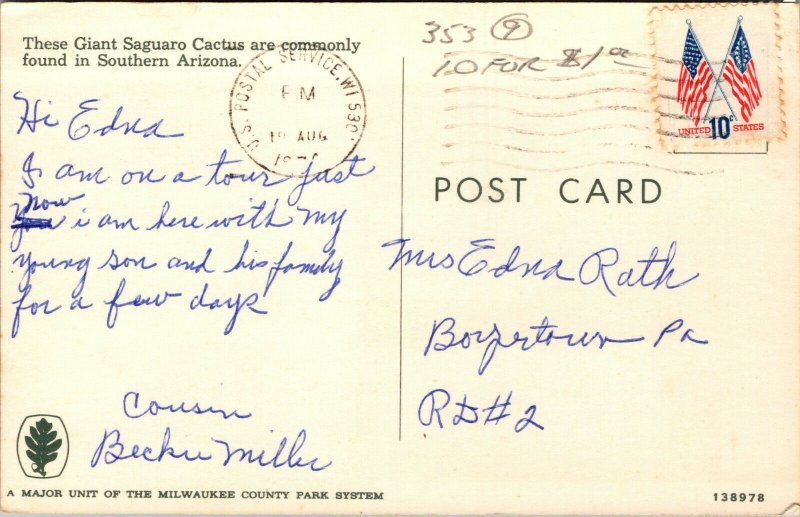 These Giant Saguaro Cactus are commonly
found in Southern Arizona.
353 9
10 FOR $1.00
U.S. POSTAL SERVICE, WI 530
PM
AUG
UNITED 10c STATES
Hi Edna
I am on a tour just
now i am here with my
young son and his family
for a few days
Cousin
Beckie Miller
POST CARD
Mrs Edna Rath
Boyertown Pa
RD#2
A MAJOR UNIT OF THE MILWAUKEE COUNTY PARK SYSTEM
138978